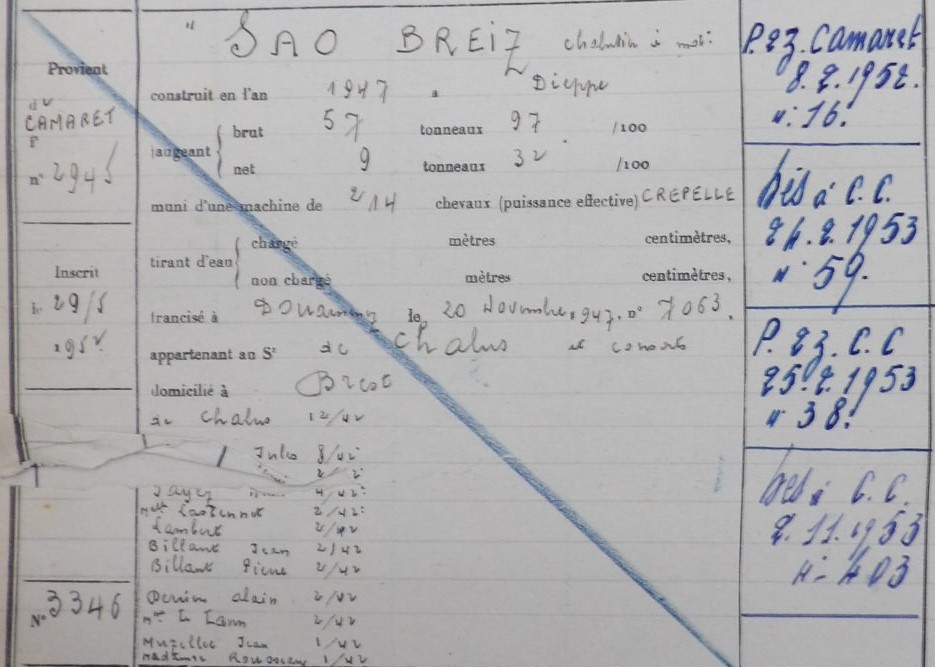 Provient
du
CAMARET
f°
n° 2945
Inscrit
le 29/5
1952
N° 3346
" SAO BREIZ chalutier à mot:
construit en l'an 1947 à Dieppe
jaugeant brut 57 tonneaux 97 /100
net 9 tonneaux 32 /100
muni d'une machine de 214 chevaux (puissance effective) CREPELLE
tirant d'eau chargé mètres centimètres,
non chargé mètres centimètres,
francisé à Douarnenez le 20 Novembre 1947. n° 7063.
appartenant au Sr de Chalus et consorts
domicilié à Brest
de Chalus 12/42
Jules 8/42
4/42
Mell 2/42
Lambert 2/42
Billant Jean 2/42
Billant Pierre 2/42
Perrin alain 2/42
Le Lann 2/42
Muzellec Jean 1/42
1/42
P. Camaret
8.2.1952.
n: 16.
Dés à C.C.
24.2.1953
n: 59.
P. C.C
25.2.1953
n: 38.
Dés à C.C.
2.11.1953
n- 403